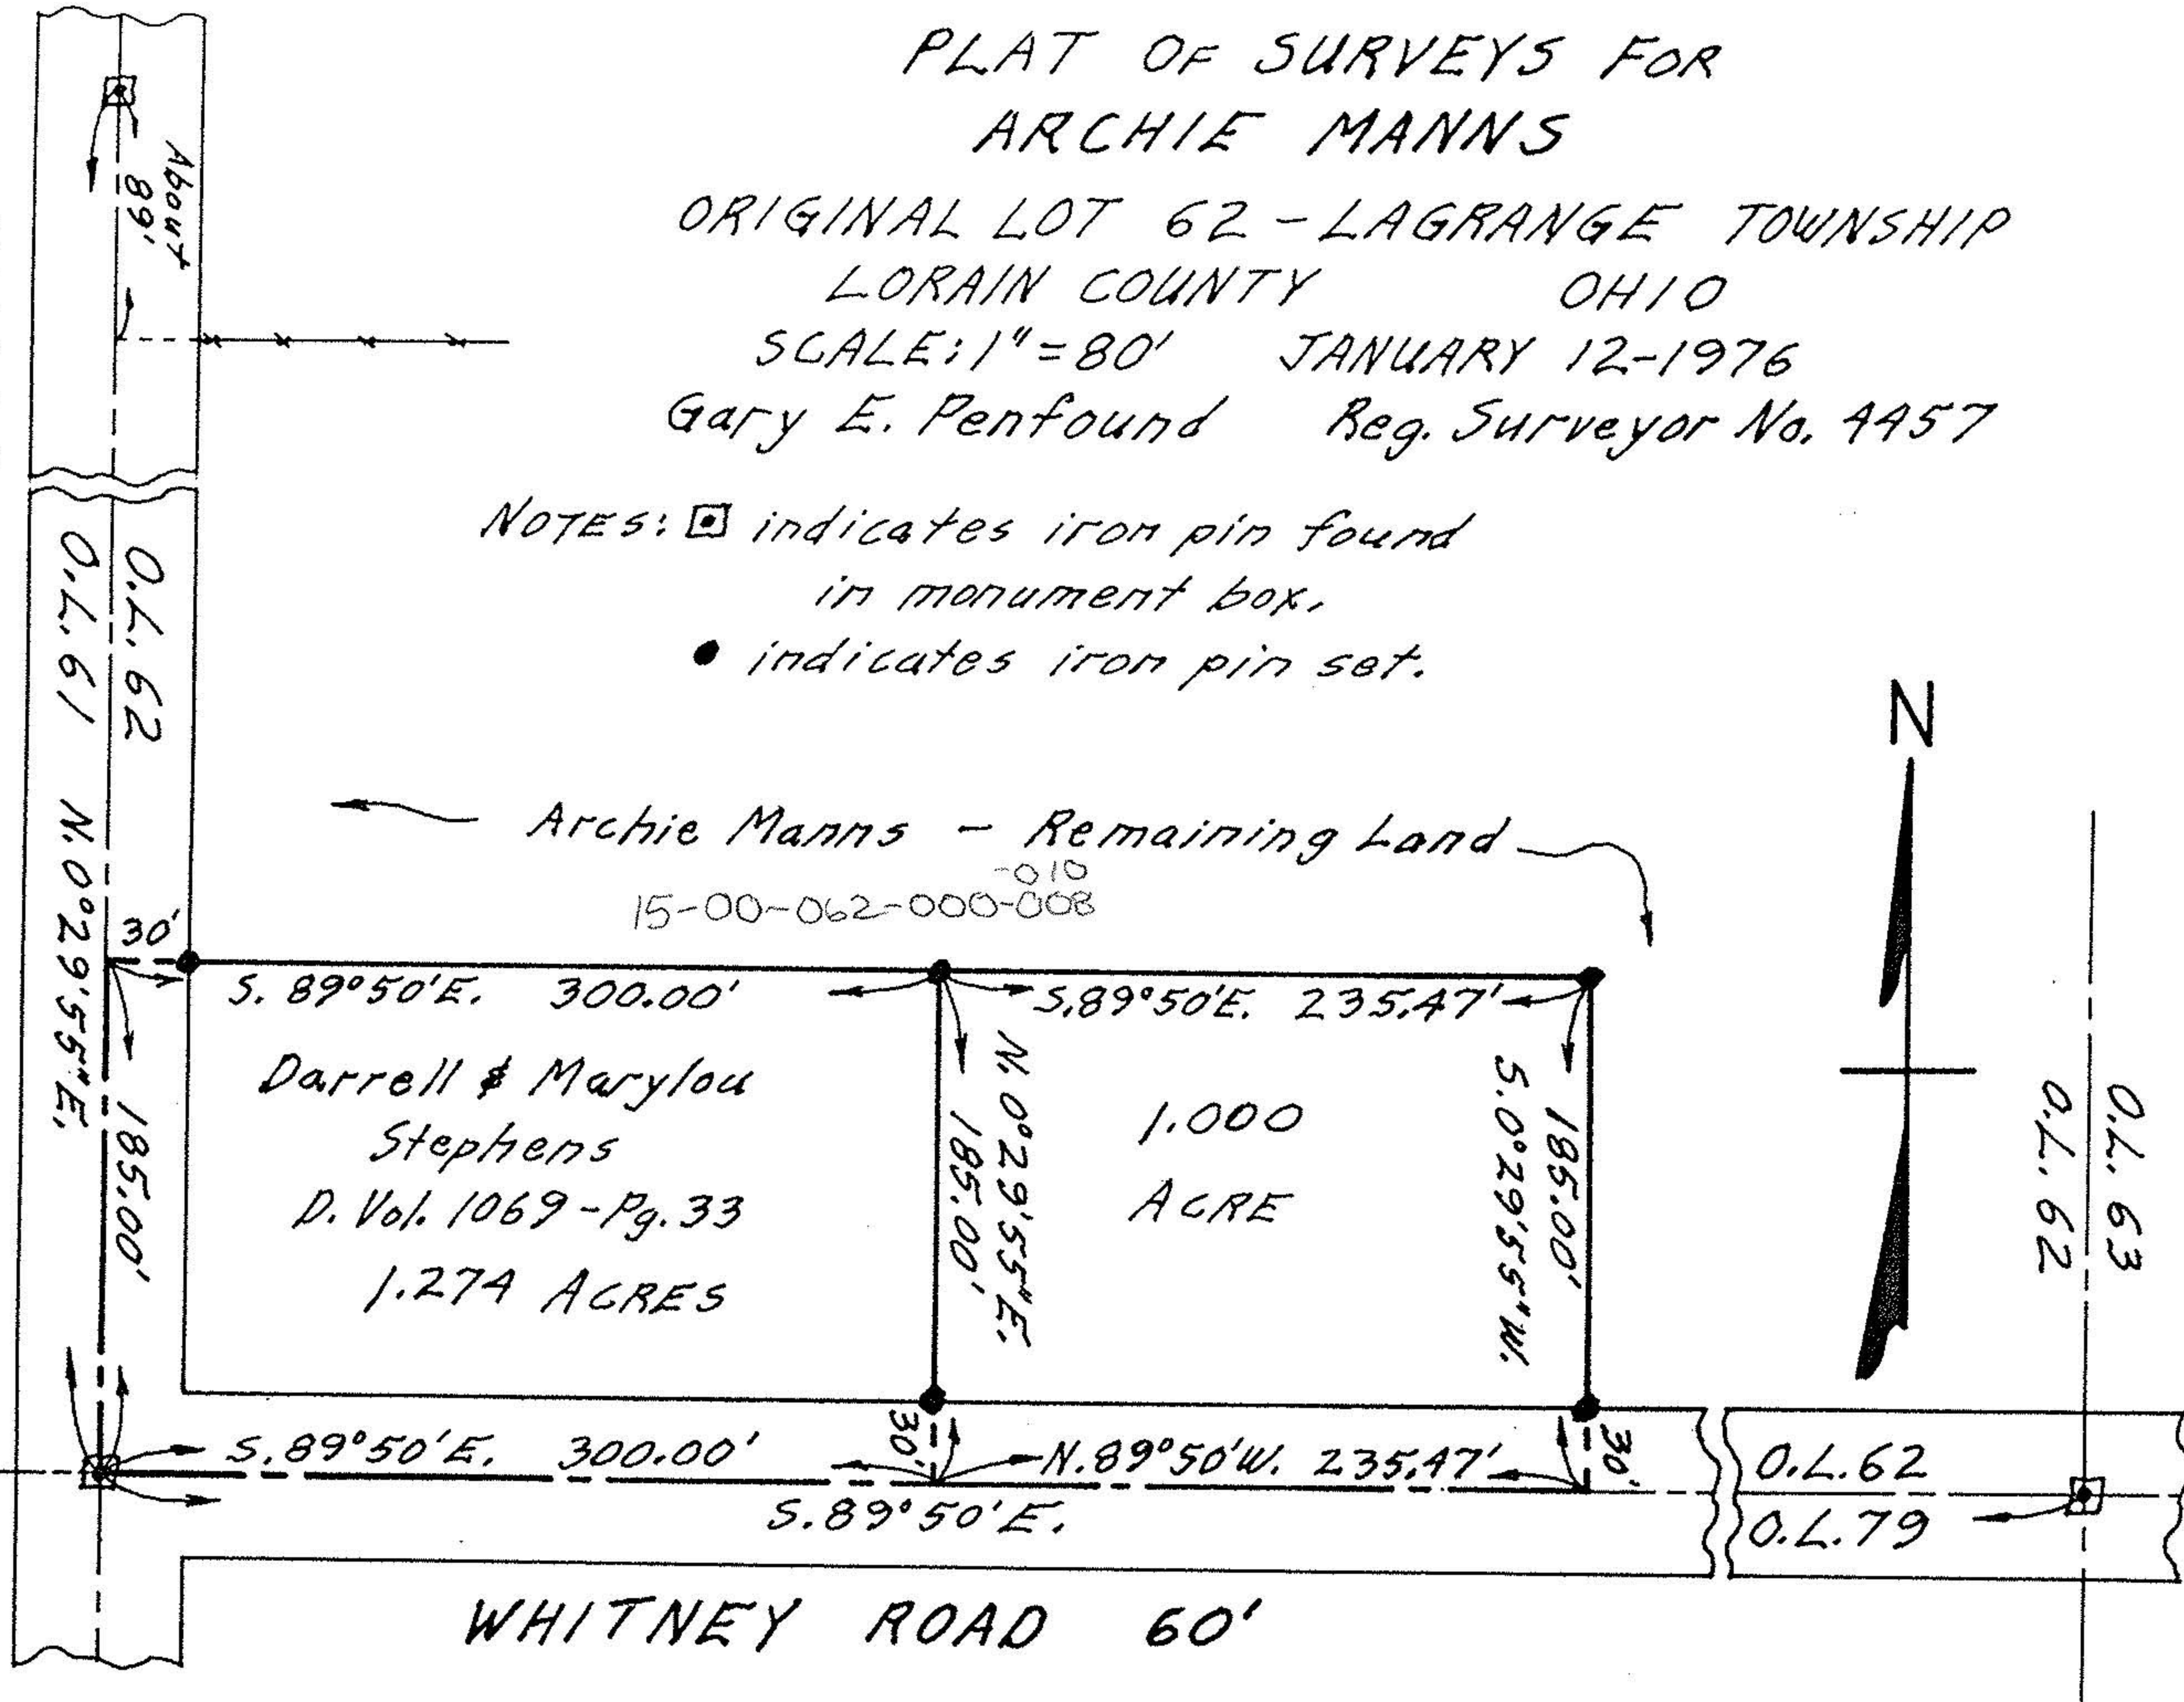 PLAT OF SURVEYS FOR
ARCHIE MANNS
ORIGINAL LOT 62 - LAGRANGE TOWNSHIP
LORAIN COUNTY OHIO
SCALE: 1" = 80' JANUARY 12-1976
Gary E. Penfound Reg. Surveyor No. 4457
About
89'
NOTES: indicates iron pin found
in monument box.
indicates iron pin set.
O.L. 62
O.L. 61 N.0°29'55"E.
N
Archie Manns - Remaining Land
-010
15-00-062-000-008
30'
S. 89°50'E. 300.00'
S.89°50'E. 235.47'
185.00'
Darrell & Marylou
Stephens
D. Vol. 1069 - Pg. 33
1.274 ACRES
N. 0°29'55"E.
185.00'
1.000
ACRE
185.00'
S.0°29'55"W.
O.L. 63
O.L. 62
30'
30'
S.89°50'E. 300.00'
N.89°50'W. 235.47'
S.89°50'E.
O.L.62
O.L.79
WHITNEY ROAD 60'